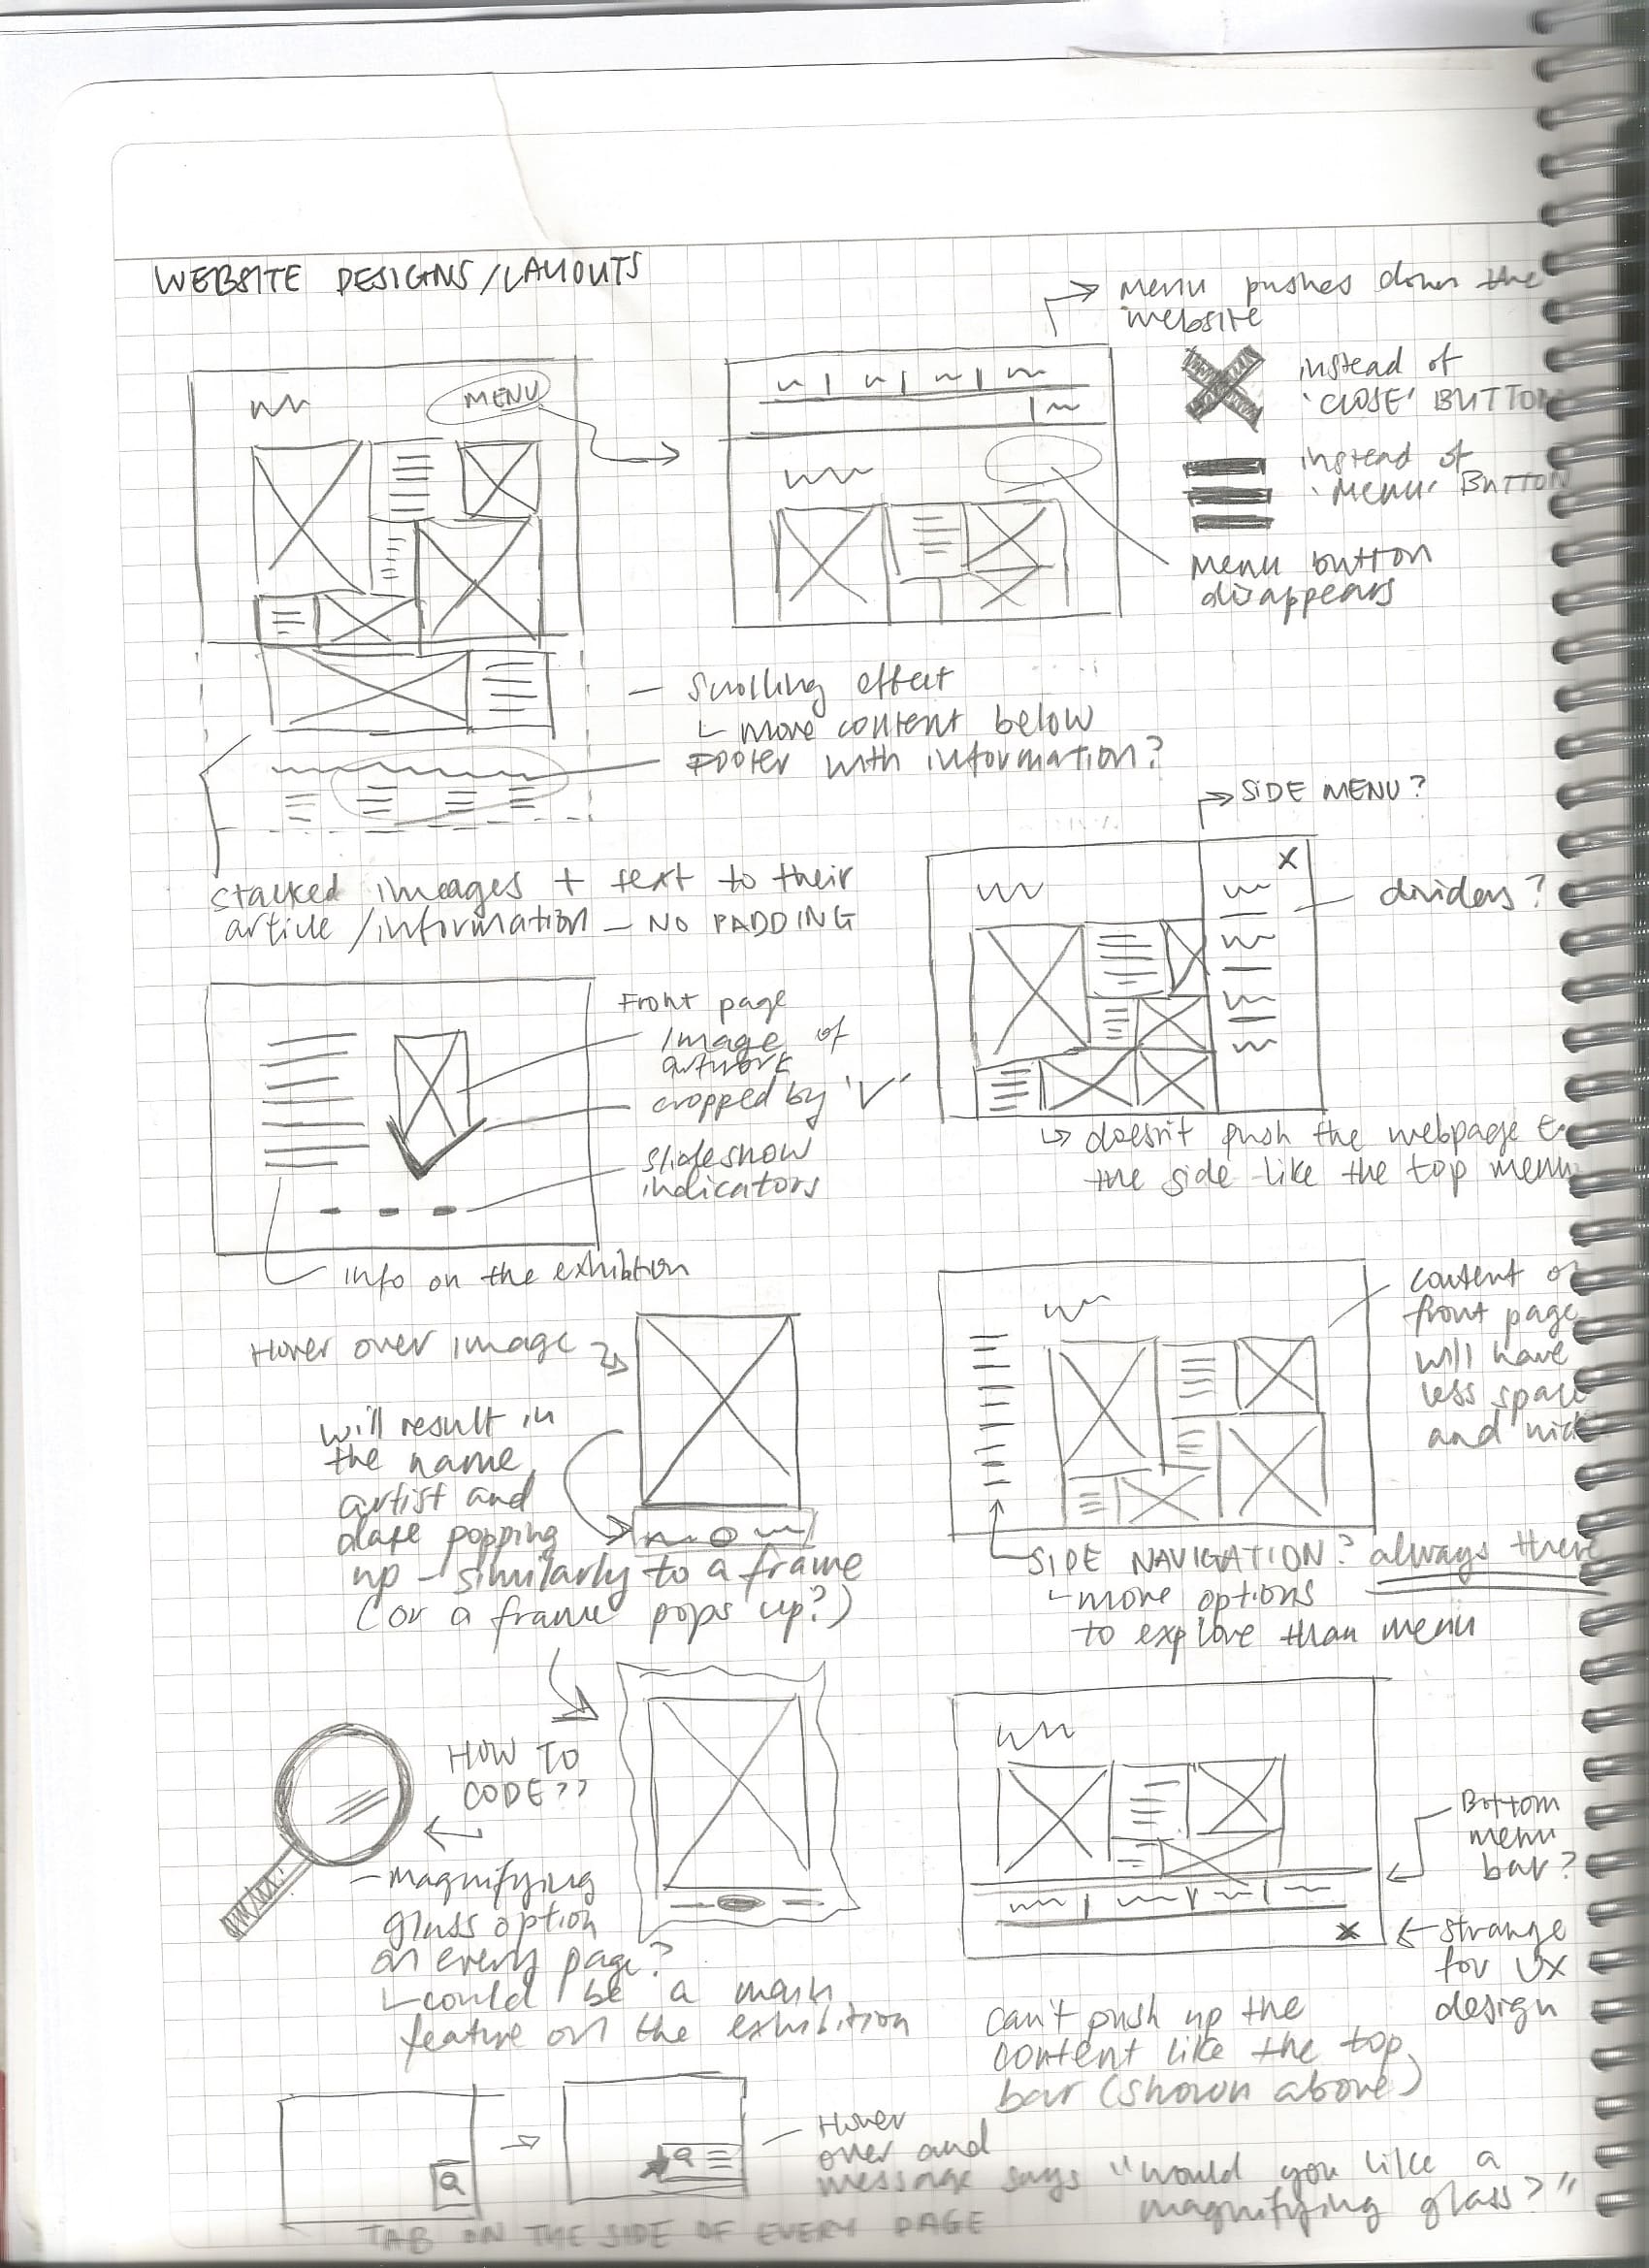 WEBSITE DESIGNS/LAYOUTS
MENU
Menu pushes down the
website
instead of
'CLOSE' BUTTON
instead of
'MENU' BUTTON
Menu button
disappears
Scrolling effect
more content below
Footer with information?
stacked images + text to their
article/information - NO PADDING
SIDE MENU?
X
dividers?
doesn't push the webpage
the side like the top menu
Front page
image of
artwork
cropped by 'V'
slideshow
indicators
info on the exhibition
Hover over image
will result in
the name
artist and
date popping
up - similarly to a frame
(or a frame pops up?)
content
front page
will have
less space
and
SIDE NAVIGATION? always there
more options
to explore than menu
HOW TO
CODE??
- Magnifying
glass option
on every page?
could be a main
feature on the exhibition
Bottom
menu
bar?
x
strange
for UX
design
can't push up the
content like the top
bar (shown above)
Hover
over and
message says "would you like a
magnifying glass?"
TAB ON THE SIDE OF EVERY PAGE